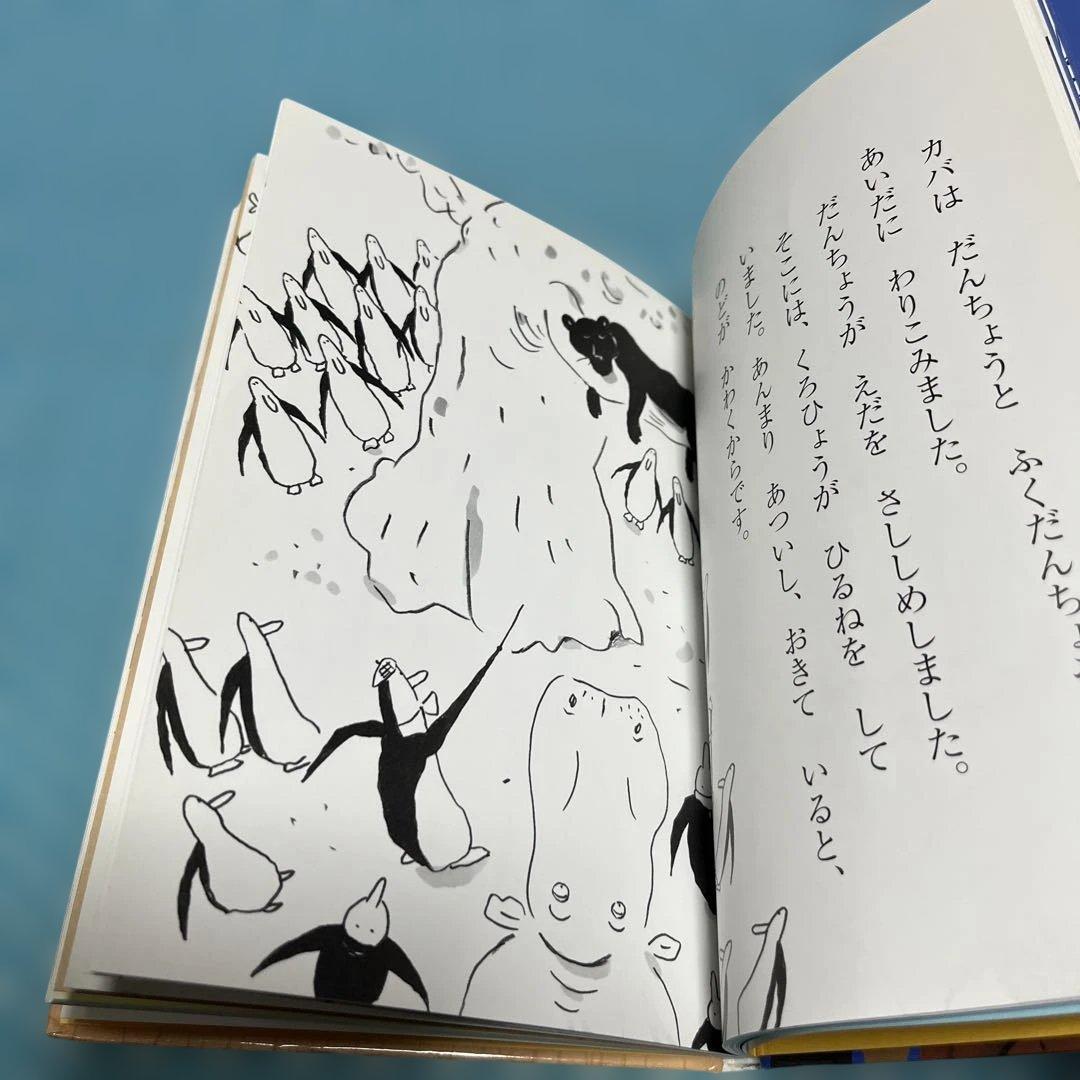 カバは だんちょうと ふくだんちょ
あいだに わりこみました。
だんちょうが えだを さししめしました。
そこには、くろひょうが ひるねを して
いました。あんまり あついし、おきて いると、
のどが かわくからです。